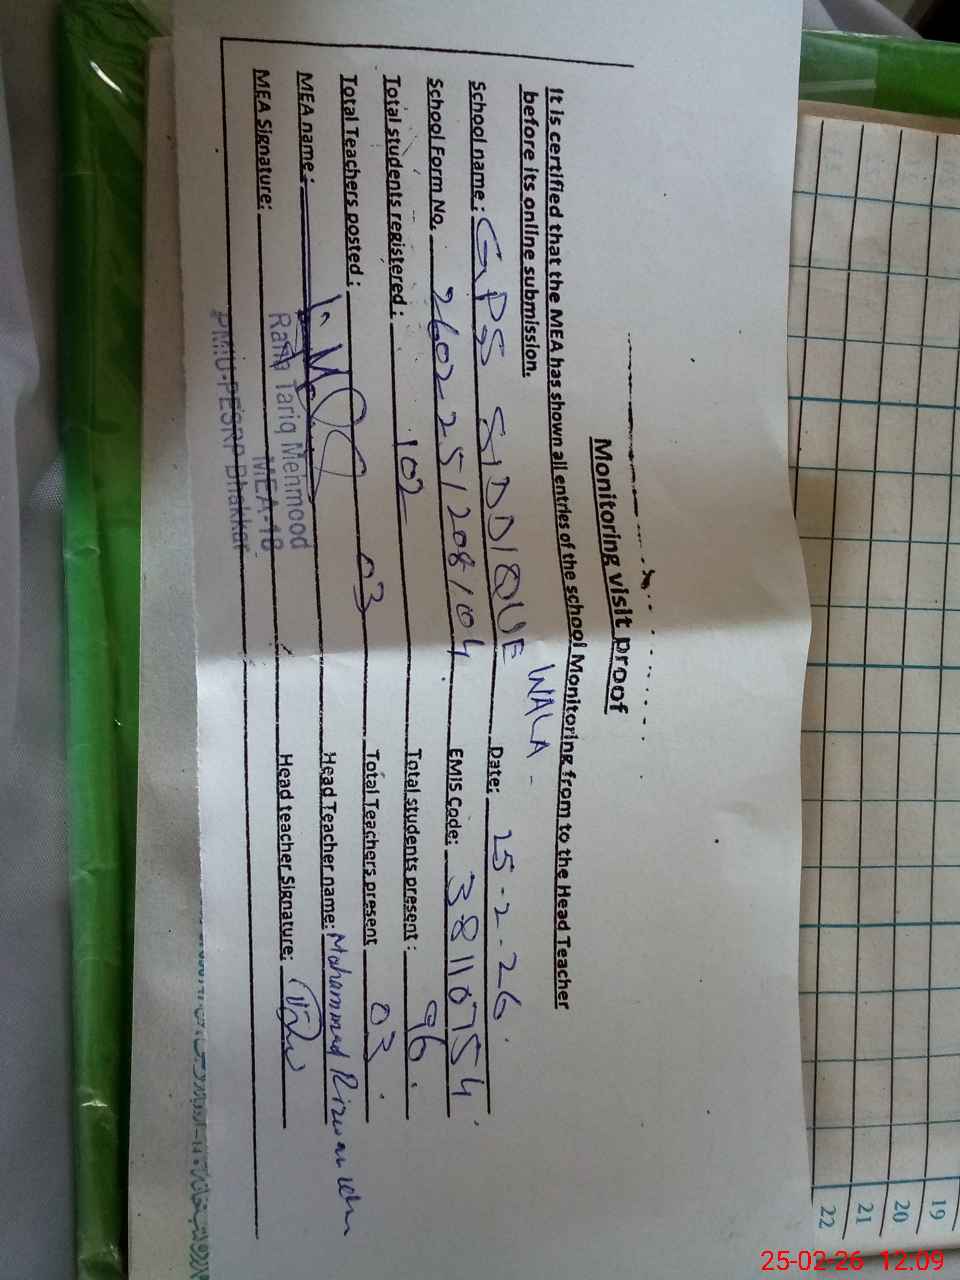 Monitoring visit proof
It is certified that the MEA has shown all entries of the school Monitoring from to the Head Teacher
before its online submission.
School name : GPS SIDDIQUE WALA - Date: 25-2-26.
School Form No. 260225/208/04. EMIS Code: 38110754
Total students registered : 102 Total students present : 96.
Total Teachers posted : 03 Total Teachers present 03.
MEA name : Head Teacher name: Mohammad Rizwan
MEA Signature: Head teacher Signature:
Rana Tariq Mehmood
MEA-18
PMIU-PESRP Bhakkar
19
20
21
22
25-02-26 12.09